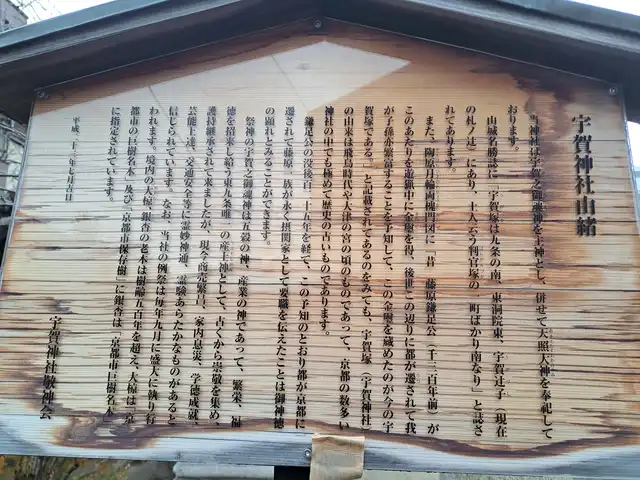 宇賀神社由緒
当神社は宇賀之御魂神を主神とし、併せて天照大神を奉祀して
おります。
山城名勝誌に「宇賀塚は九条の南、東洞院東、宇賀辻子(現在
の札ノ辻)にあり、土人云う判官塚の一町ばかり南なり」と誌さ
れてあります。
また、陶原月輪両殿門図に「昔 藤原鎌足公(千三百年前)が
このあたりを遊猟中に金璽を得、後世この辺りに都が遷されて我
が子孫亦繁栄することを予知して、この金璽を蔵めたのが今の宇
賀塚である。」と記載されてあるのをみても、宇賀塚(宇賀神社)
の由来は飛鳥時代や大津の宮の頃のものであって、京都の数多い
神社の中でも極めて歴史の古いものであります。
鎌足公の没後百二十五年を経て、この予知のとおり都が京都に
遷されて藤原一族が永く摂関家として栄職を伝えたことは御神徳
の顕れとみることができます。
祭神の宇賀之御魂神は五穀の神、産業の神であって、繁栄、福
徳を招来し給う東九条唯一の産土神として、古くから崇敬を集め、
護持継承されて来ましたが、現今商売繁昌、家内息災、学業成就、
芸能上達、交通安全等に霊妙神通、霊験あらたかなものがあると
信じられています。なお、当社の例祭は毎年九月に盛大に執り行
われます。境内の大椋、銀杏の老木は樹齢五百年を超え、大椋は「京
都市の巨樹名木」及び「京都市保存樹」に銀杏は「京都市巨樹名木」
に指定されています。
平成二十二年七月吉日
宇賀神社敬神会